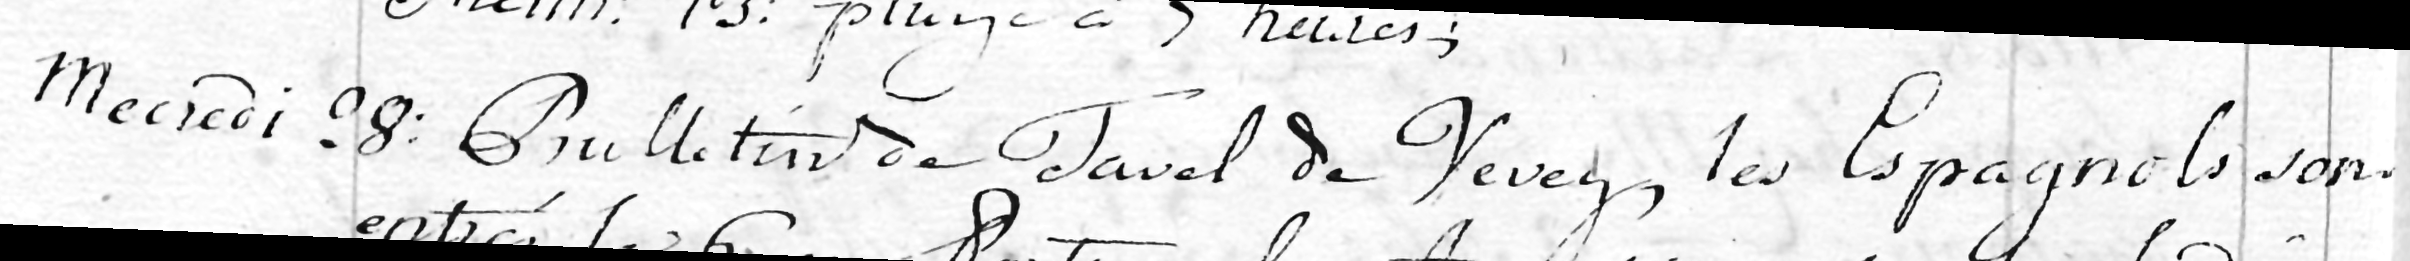 13: pluye à 5 heures;
Mecredi 28: Bulletin de Tavel de Vevey, les Espagnols son
entrés les